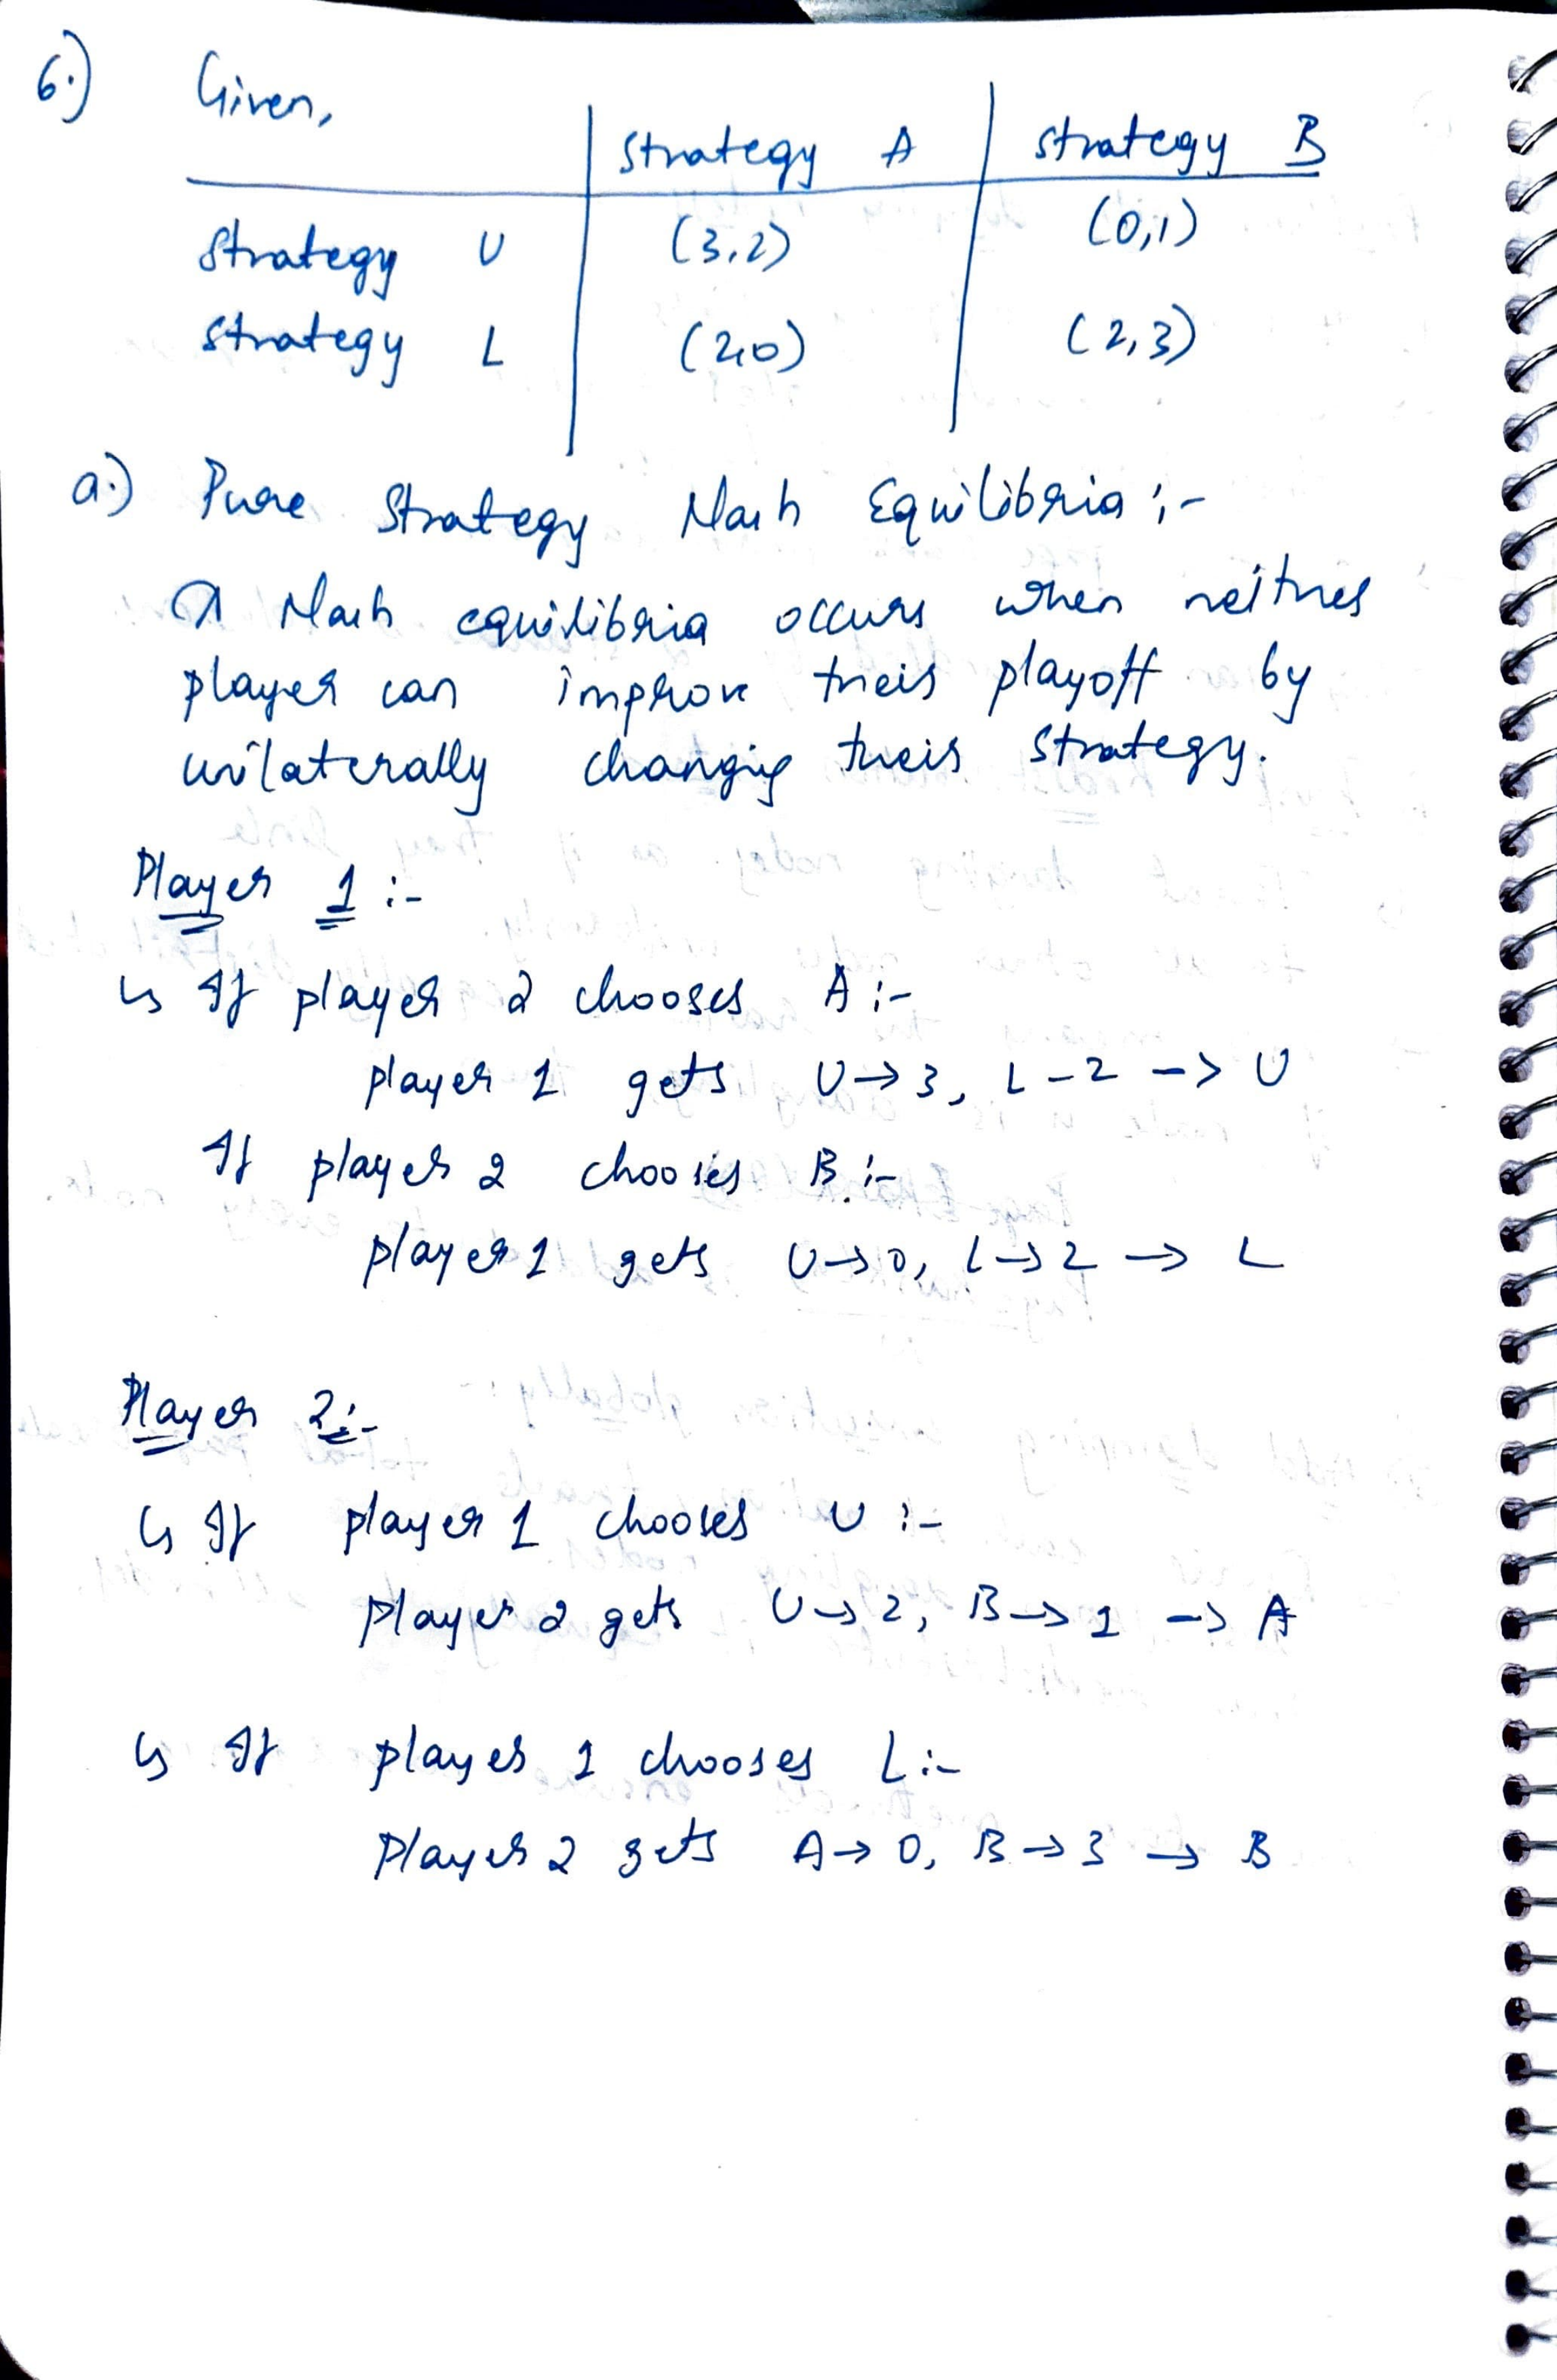 6.) Given,
strategy A strategy B
strategy U (3,2) (0,1)
strategy L (2,0) (2,3)
a.) Pure Strategy Nash Equilibria :-
A Nash equilibria occurs when neither
player can improve their playoff by
unilaterally changing their strategy.
Player 1 :-
↳ If player 2 chooses A :-
player 1 gets U → 3, L - 2 -> U
If player 2 chooses B :-
player 1 gets U → 0, L → 2 → L
Player 2 :-
↳ If player 1 chooses U :-
player 2 gets U → 2, B → 1 → A
↳ If player 1 chooses L :-
Player 2 gets A → 0, B → 3 → B